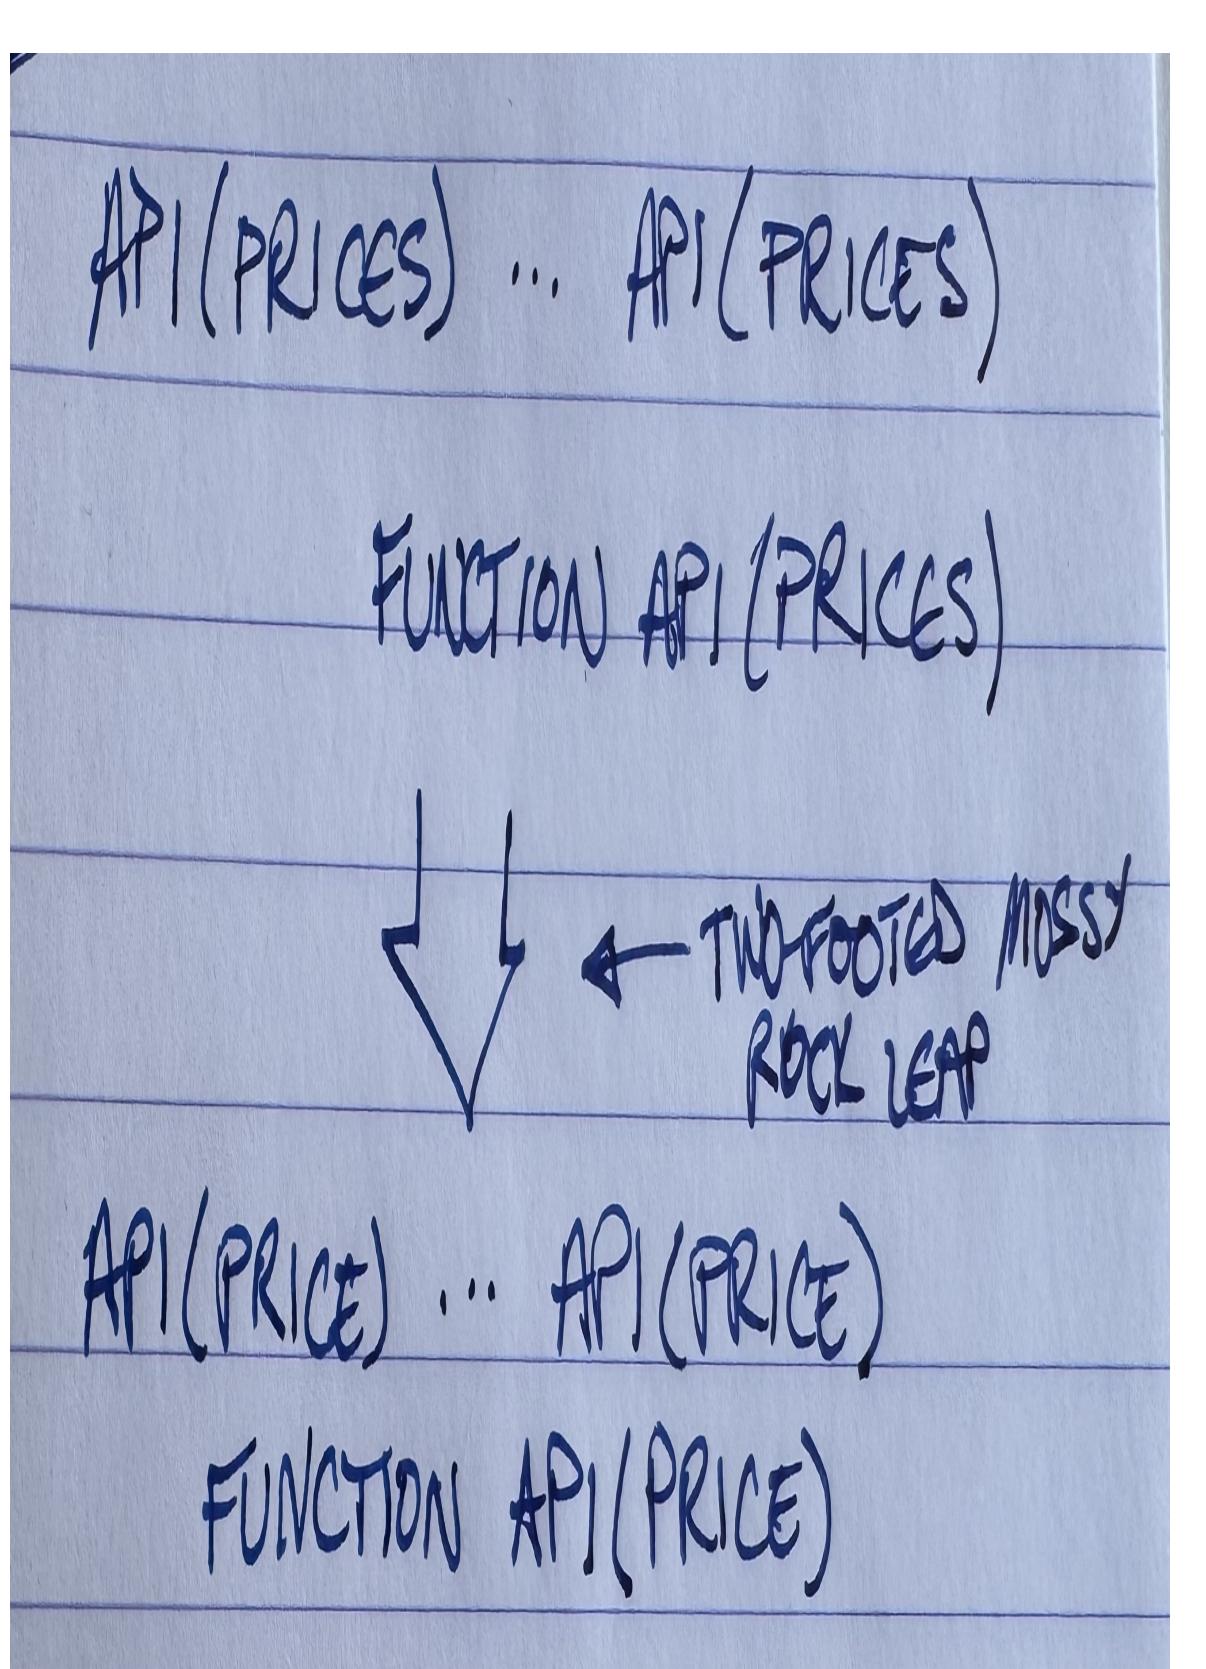 API(PRICES) ... API(PRICES)
FUNCTION API(PRICES)
TWO-FOOTED MOSSY
ROCK LEAP
API(PRICE) ... API(PRICE)
FUNCTION API(PRICE)